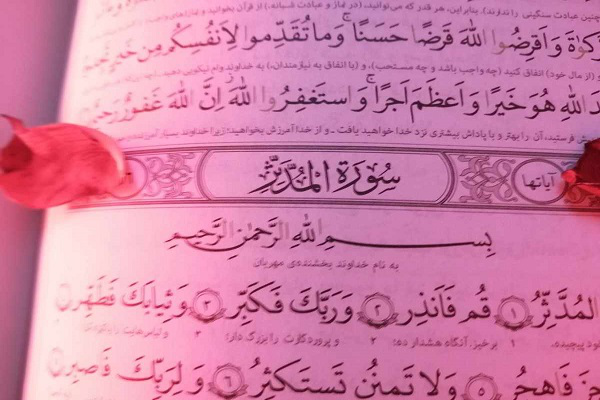 چنین عبادت سنگینی را ندارند). بنابراین، هر قدر که می‌توانید، (در نماز و عبادت شبانه،) از قرآن بخوانید و نمازهای
وَأَقْرِضُوا اللَّهَ قَرْضًا حَسَنًا ۚ وَمَا تُقَدِّمُوا لِأَنفُسِكُم مِّنْ خَيْرٍ
(از مال خود) انفاق کنید (چه واجب باشد و چه مستحب)، و (با انفاق به نیازمندان،) به خداوند وام نیکویی دهید.
اللَّهِ هُوَ خَيْرًا وَأَعْظَمَ أَجْرًا ۚ وَاسْتَغْفِرُوا اللَّهَ ۖ إِنَّ اللَّهَ غَفُورٌ رَّحِيمٌ
فرستید، آن را بهتر و با پاداش بیشتری نزد خدا خواهید یافت ـ و از خدا آمرزش بخواهید؛ زیرا خداوند بسیار
آیاتها سُورَةُ الْمُدَّثِّرِ
بِسْمِ اللَّهِ الرَّحْمَٰنِ الرَّحِيمِ
به نام خداوند بخشنده‌ی مهربان
الْمُدَّثِّرُ ۱ قُمْ فَأَنذِرْ ۲ وَرَبَّكَ فَكَبِّرْ ۳ وَثِيَابَكَ فَطَهِّرْ
پیچیده. ۱ برخیز، آنگاه هشدار ده؛ ۲ و پروردگارت را بزرگ دار؛ ۳ و لباس‌هایت را
فَاهْجُرْ ۵ وَلَا تَمْنُن تَسْتَكْثِرُ ۶ وَلِرَبِّكَ فَاصْبِرْ